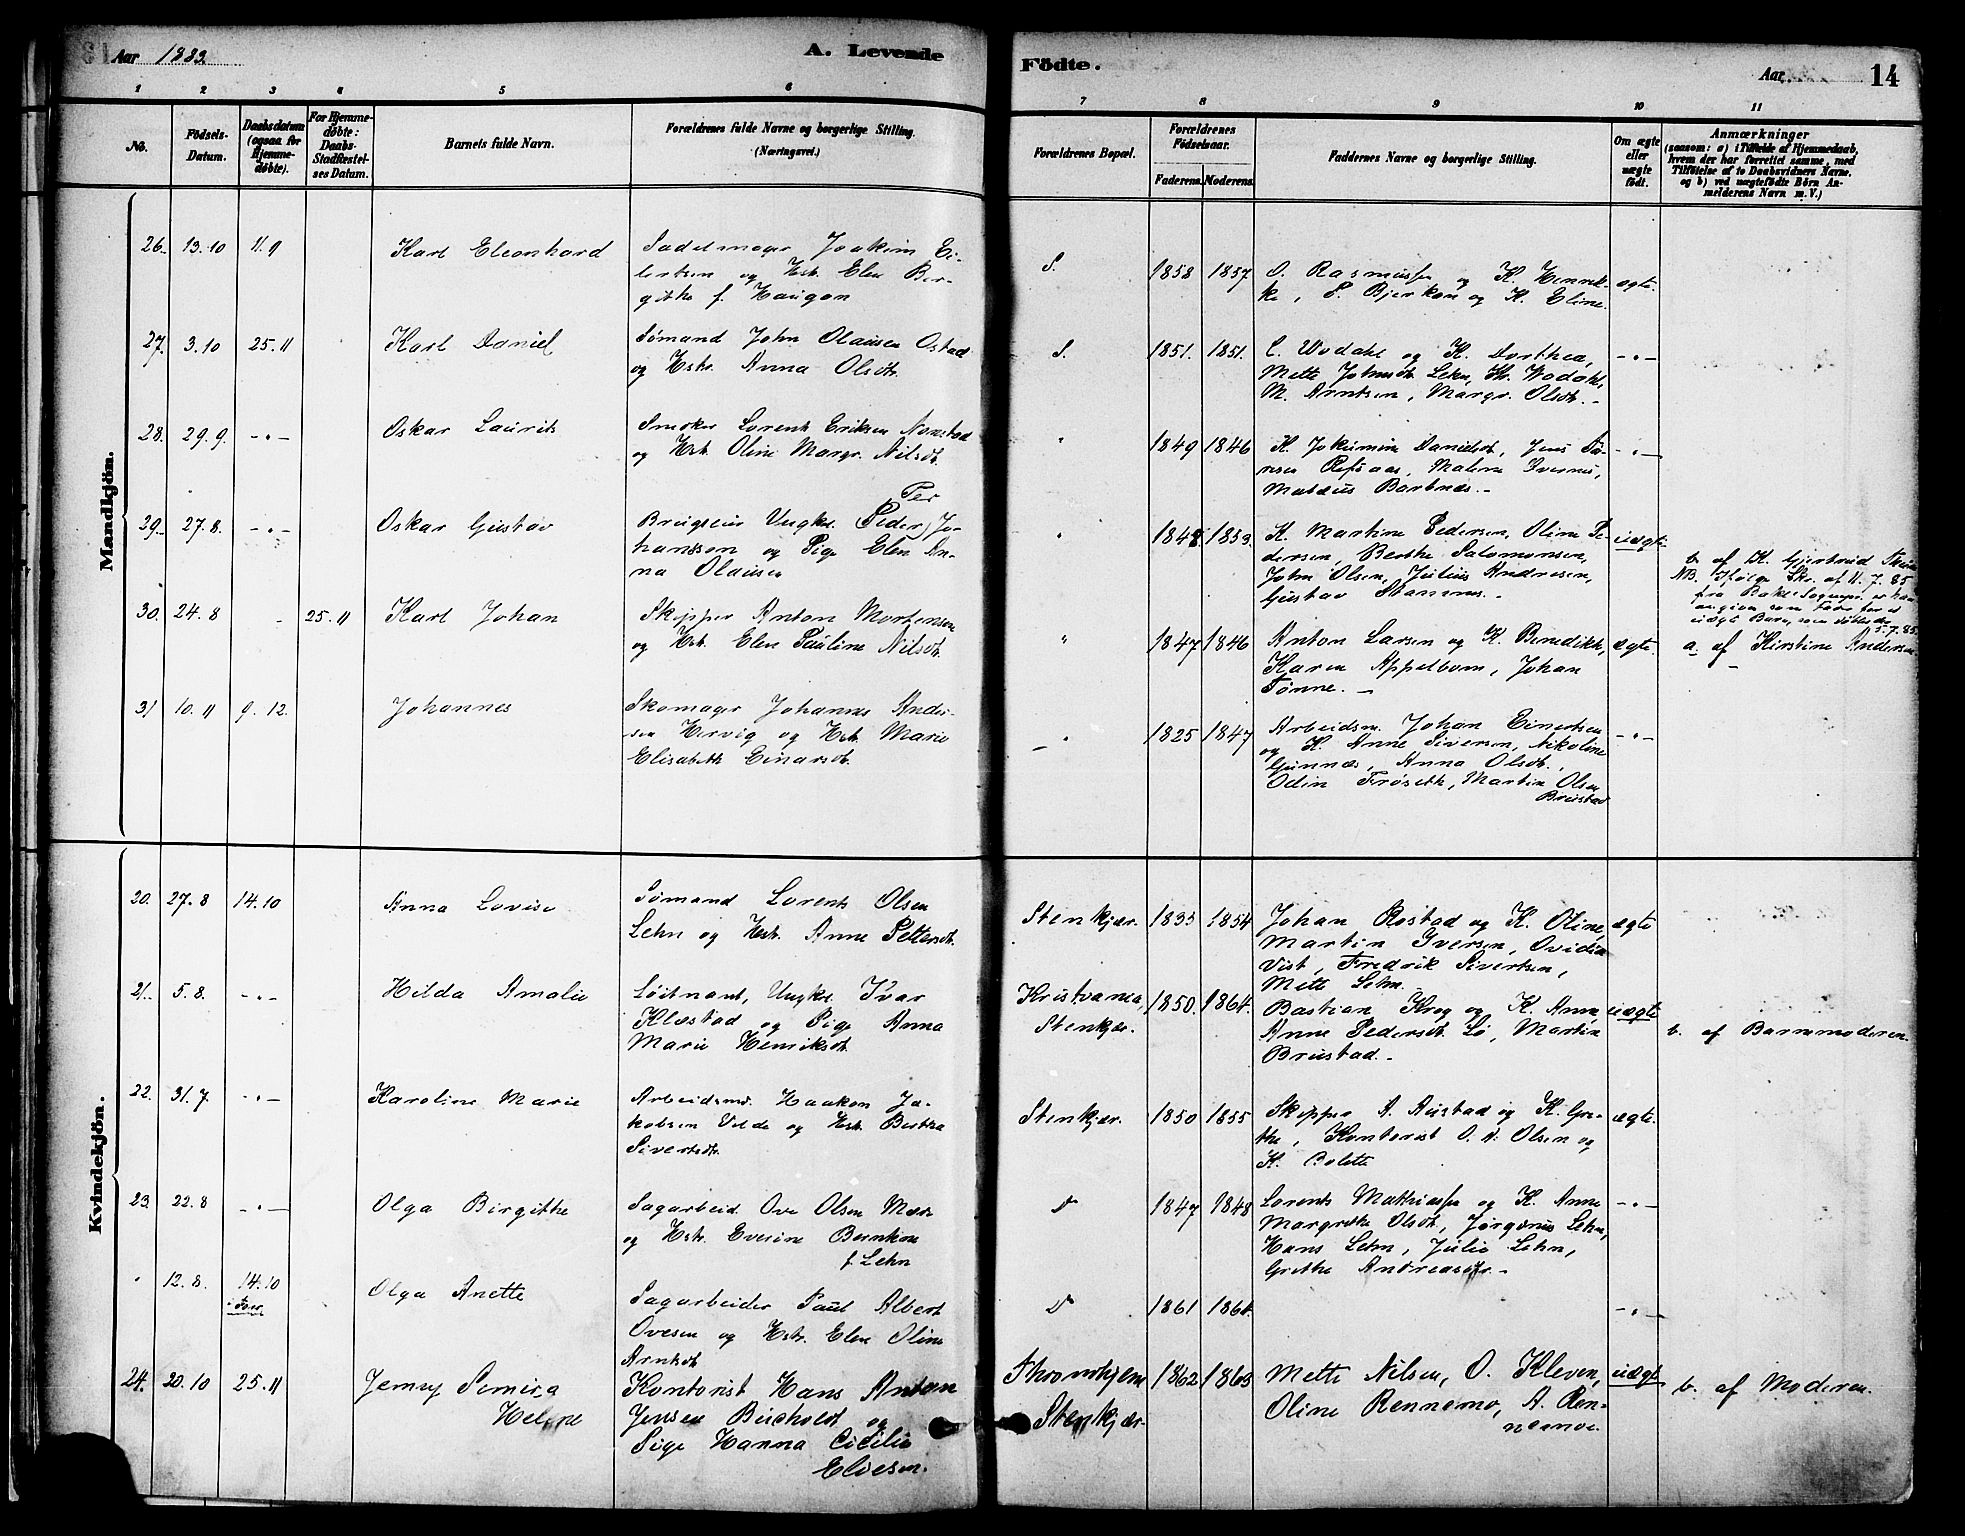 Aar 1883.
A. Levende Födte.
Aar
14
1 2 3 4 5 6 7 8 9 10 11
No.
Födsels-Datum.
Daabsdatum (ogsaa for Hjemme-døbte).
For Hjemme-døbte: Daabs-Stadfæstel-ses Datum.
Barnets fulde Navn.
Forældrenes fulde Navne og borgerlige Stilling.
(Næringsvei.)
Forældrenes Bopæl.
Forældrenes Födselsaar.
Faderens. Moderens.
Faddernes Navne og borgerlige Stilling.
Om ægte eller uægte födt.
Anmærkninger
(saasom: a) i Tilfælde af Hjemmedaab,
hvem der har forrettet samme, med
Tilföielse af to Daabsvidners Navne.
og b) ved uægtefödte Börn An-
melderens Navn m. V.)
Mandkjön.
26. 13.10 11.11 Karl Eleonhard
Sadelmager Joakim Ei-
lertsen og Hstr. Elen Ber-
githe f. Haugan
S. 1858 1857
O. Rasmussen og K. Henrik-
ke, P. Bjerkan og K. Eline.
ægte.
27. 3.10 25.11 Karl Daniel
Sømand John Olausen Ostad
og Hstr. Anna Olsdt.
S. 1851. 1851.
C. Wodahl og K. Dorthea,
Mette Johnsdt. Lehn, Kr. Wodahl,
M. Arntsen, Margr. Olsdt. -
-"-
28. 29.9. -"- Oskar Laurits
Smeker Lorents Eriksen Norstad
og Hstr. Oline Margr. Nilsdt.
" 1849 1846
K. Jokumine Danielsdt, Jens Tø-
resen Refsaas, Malene Ivernes,
Matæus Bartnes. -
-"-
29. 27.8. -"- Oskar Gustav
Per
Brugseier Ungkl. (Peder) Jo-
hanssen og Pige Elen An-
na Olausen
" 1848. 1853.
K. Martine Pedersen, Oline Pe-
dersen, Berthe Salomonsen,
John Olsen, Julius Andresen,
Gustav Stamnes. -
uægte
b. af K. Gjertrud
NB. Ifølge Skr. af 11.7.85
fra Bakke Sognepr. er han
angiven som Fader for et
uægt Barn, som døbtes
5.7.85.
30. 24.8 - 25.11 Karl Johan
Skipper Anton Mortensen
og Hstr. Elen Pauline Nilsdt.
" 1847 1846
Anton Larsen og K. Benedikte,
Karen Appelbom, Johan
Tønne. -
ægte.
a. af Kirstine Andersen
-
31 10.11 9.12. Johannes
Skomager Johannes Ander-
sen Hervig og Hstr. Marie
Elisabeth Einarsdt.
-" 1825 1847
Arbeidsm. Johan Einertsen
og K. Anne Siversen, Nikoline
Gunnes, Anna Olsdt.,
Odin Frøseth, Martin Olsen
Brustad
-"-
Kvindekjön.
20. 27.8 14.10 Anna Lovise
Sømand Lorents Olsen
Lehn og Hstr. Anne Pettersdt.
Stenkjær. 1833 1854
Johan Røstad og K. Oline,
Martin Iversen, Ovidia
Vist, Fredrik Sivertsen,
Mette Lehn.
ægte
21. 5.8. -"- Hilda Amalie
Løitnant, Ungkl. Ivar
Klæstad og Pige Anna
Marie Henriksdt.
Kristiania,
Stenkjær.
1850. 1864.
Bastian Krog og K. Anna,
Anne Pedersdt. Lø, Martin
Brustad. -
uægte
b. af Barnemoderen.
22. 31.7. -"- Karoline Marie
Arbeidsmd. Haakon Ja-
kobsen Velde og Hstr. Bertha
Sivertsdt.
Stenkjær. 1850 1855
Skipper A. Austad og K. Gre-
the, Kontorist O. A. Olsen og
K. Bolette
ægte.
23. 22.8 -"- Olga Birgithe
Sagarbeid. Ove Olsen Mære
og Hstr. Everine Bernhine
f. Lehn
D 1847 1848
Lorents Matthiassen og K. Anne
Margrethe Olsdt, Jørginus Lehn,
Hans Lehn, Julie Lehn,
Grethe Andreasdt. -
-"-
" 12.8. 14.10 Olga Anette
Sagarbeider Paul Albert
Ovesen og Hstr. Elen Oline
Arntsdt.
D 1861 1864.
-"-
24. 20.10 25.11 Jenny Semira
Helene
Kontorist Hans Anton
Jensen Buchholdt og
Pige Hanna Cicilie
Eliesen.
Throndhjem
Stenkjær.
1862 1863
Mette Nilsen, O. Kleven,
Oline Rennemo, A. Ren-
nemo.
uægte
b. af Moderen.